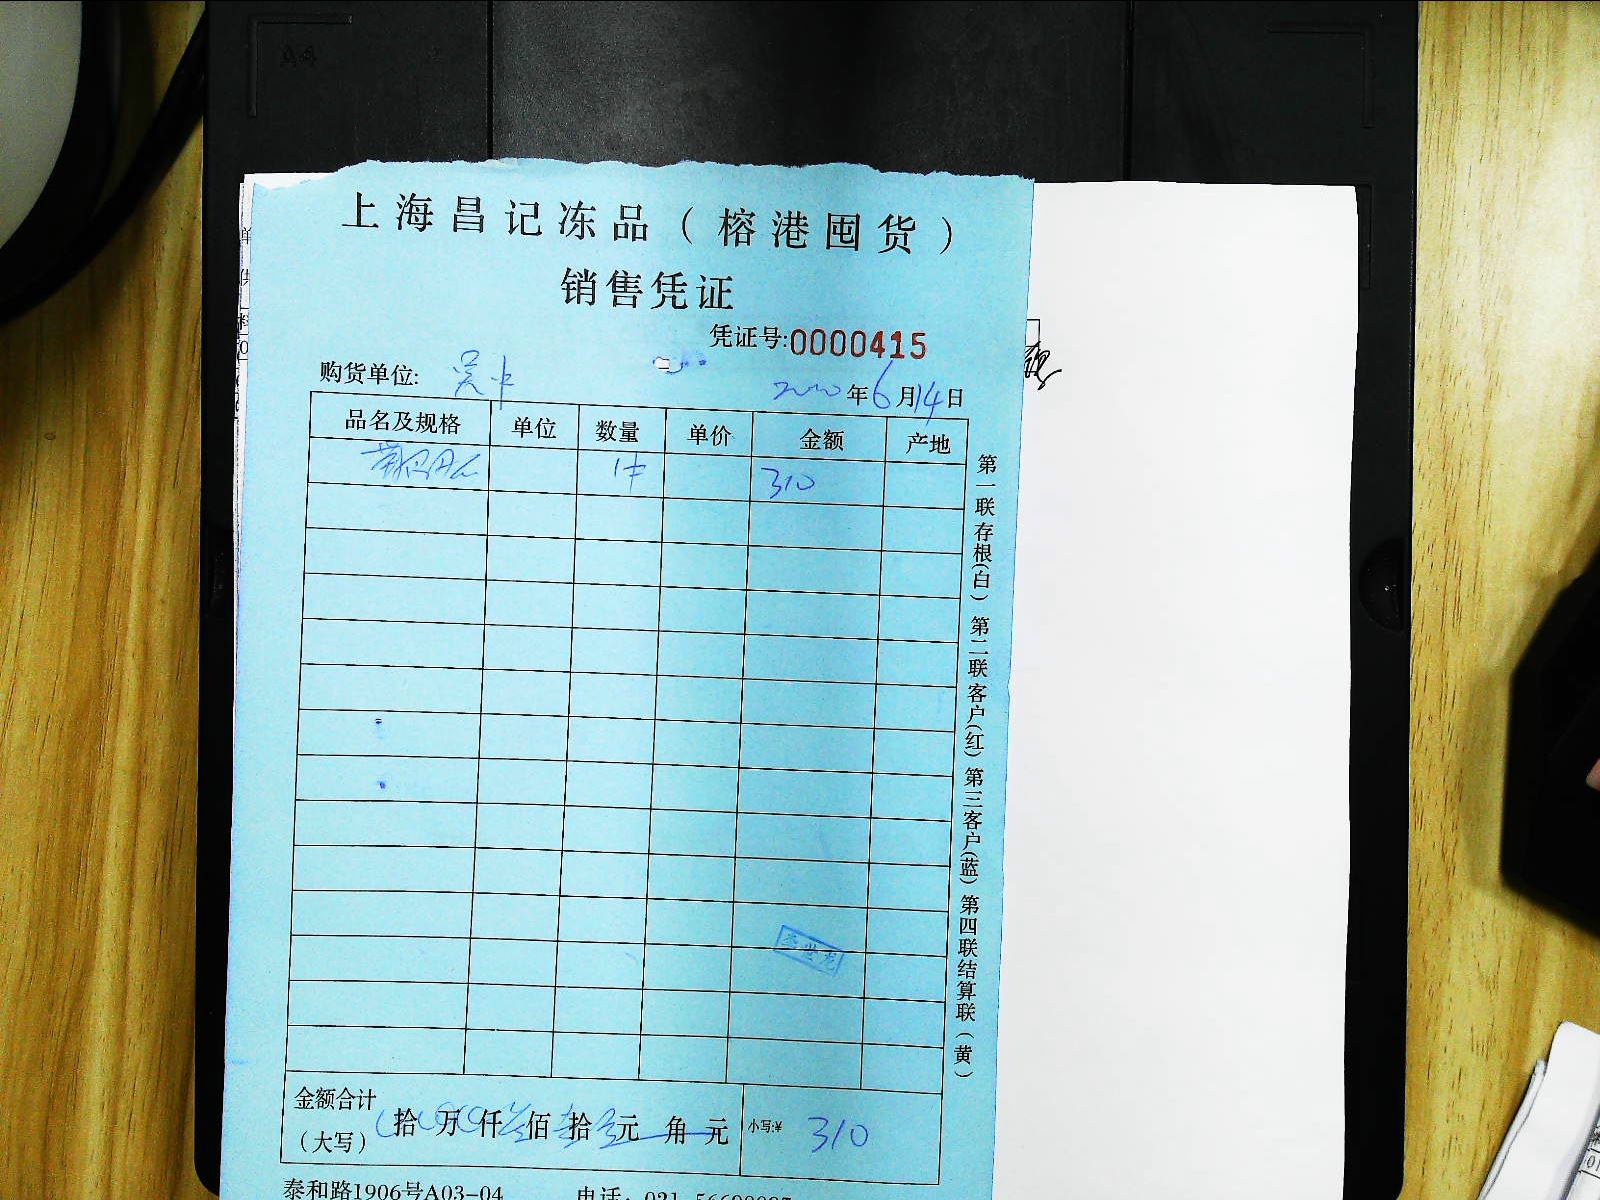 上海昌记冻品（榕港囤货）
销售凭证
凭证号:0000415
购货单位:
2020年6月14日
品名及规格 单位 数量 单价 金额 产地
1件 310
第一联存根(白) 第二联客户(红) 第三客户(蓝) 第四联结算联(黄)
金额合计
(大写) 拾 万 仟 叁佰 壹拾 零元 角 元 小写:¥ 310
泰和路1906号A03-04 电话: 021-